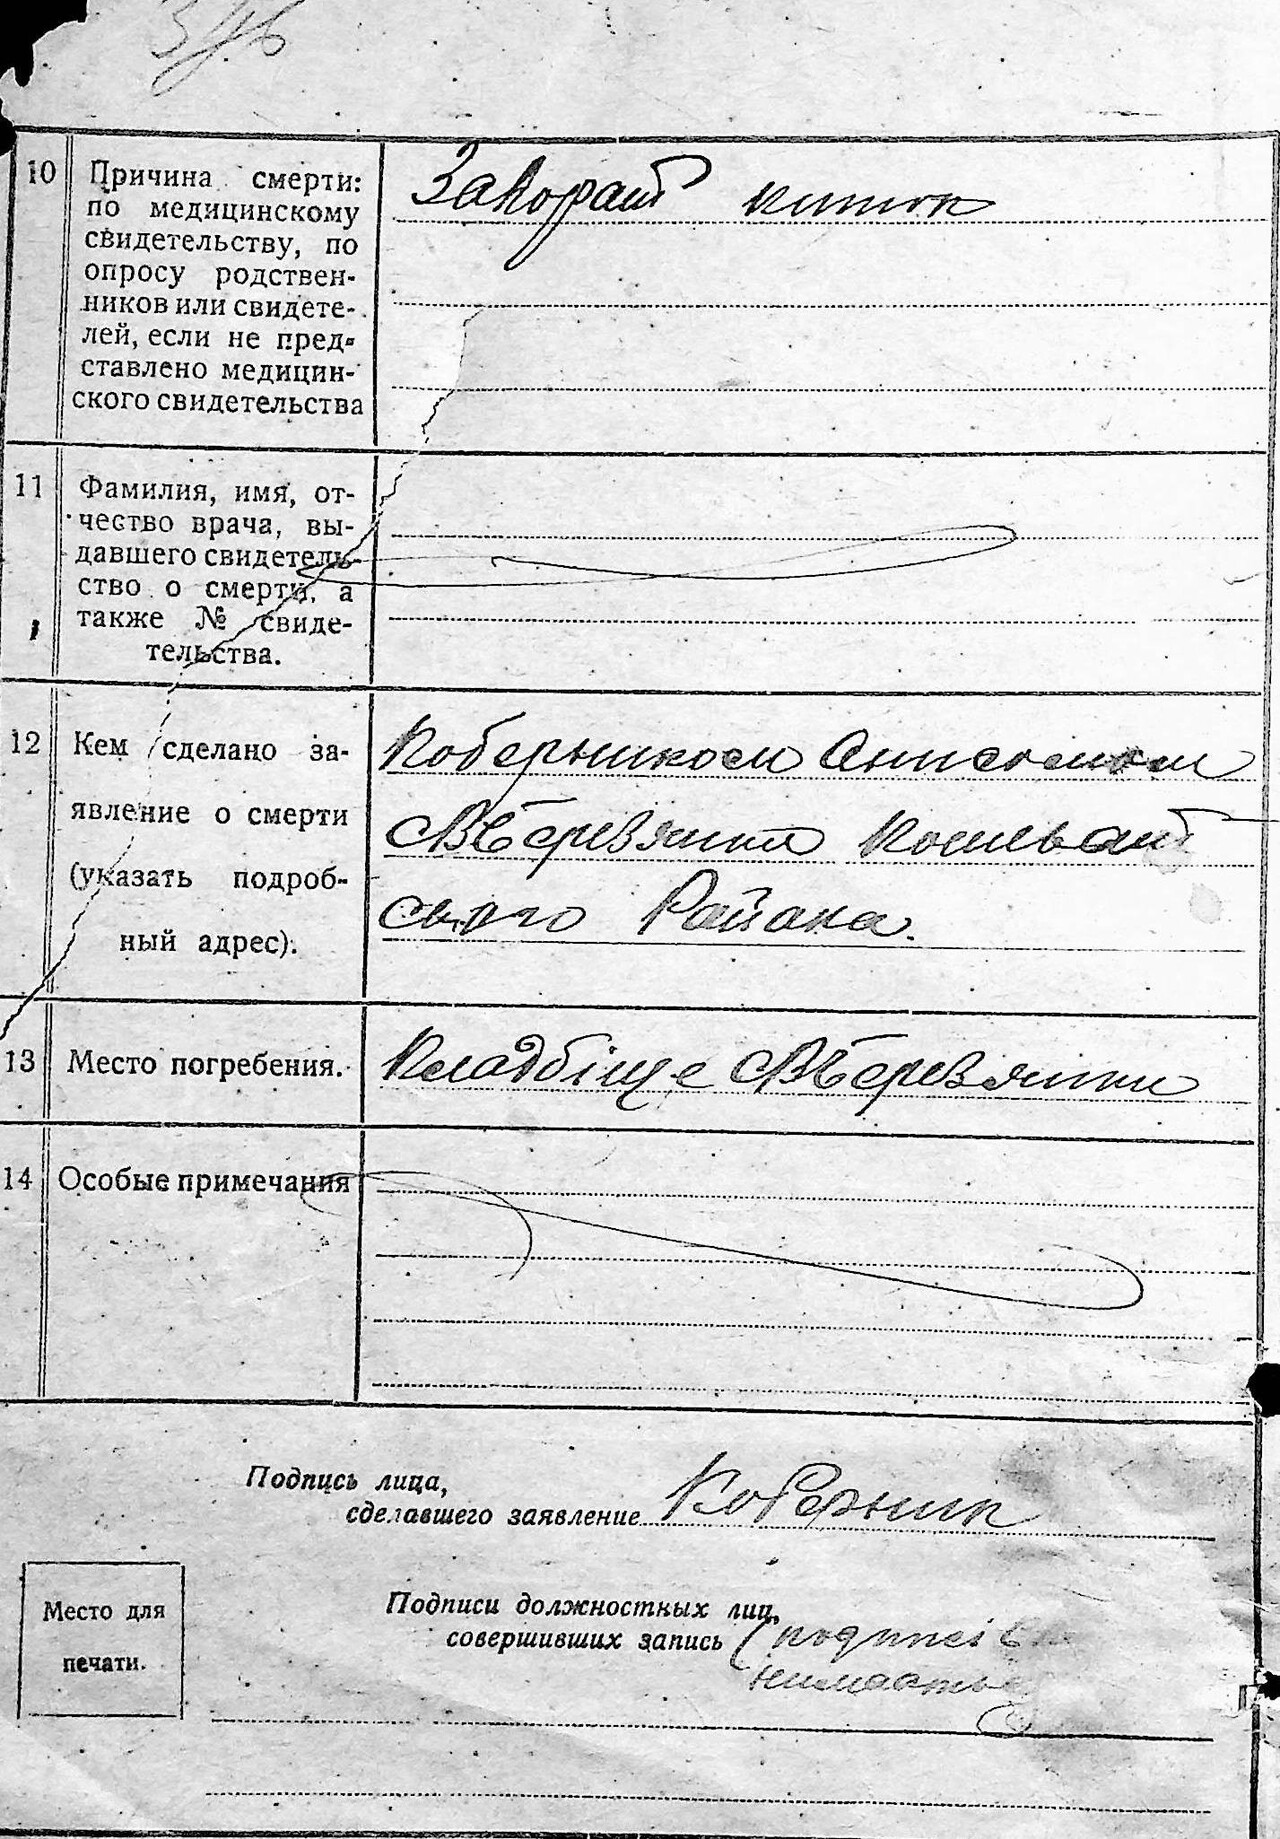 10 Причина смерти:
по медицинскому
свидетельству, по
опросу родствен-
ников или свидете-
лей, если не пред-
ставлено медицин-
ского свидетельства
кишок
11 Фамилия, имя, от-
чество врача, вы-
давшего свидетель-
ство о смерти, а
также № свиде-
тельства.
12 Кем сделано за-
явление о смерти
(указать подроб-
ный адрес).
Коберником Анисомом
Района.
13 Место погребения.
Кладбіще
14 Особые примечания
Подпись лица,
сделавшего заявление Коберник
Место для
печати.
Подписи должностных лиц,
совершивших запись